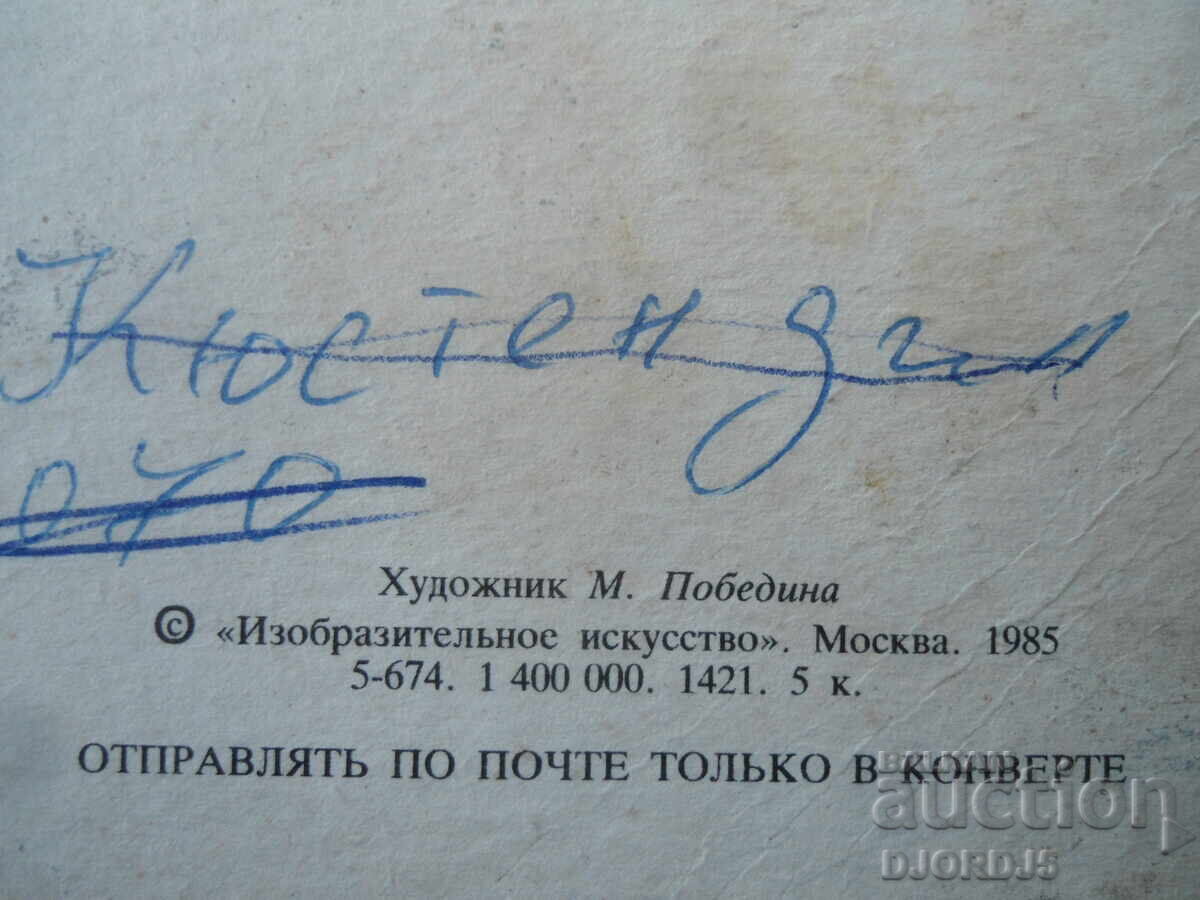 Кюстендил
070
Художник М. Победина
© «Изобразительное искусство». Москва. 1985
5-674. 1 400 000. 1421. 5 к.
ОТПРАВЛЯТЬ ПО ПОЧТЕ ТОЛЬКО В КОНВЕРТЕ
BALKAN
auction
DJORDJ5